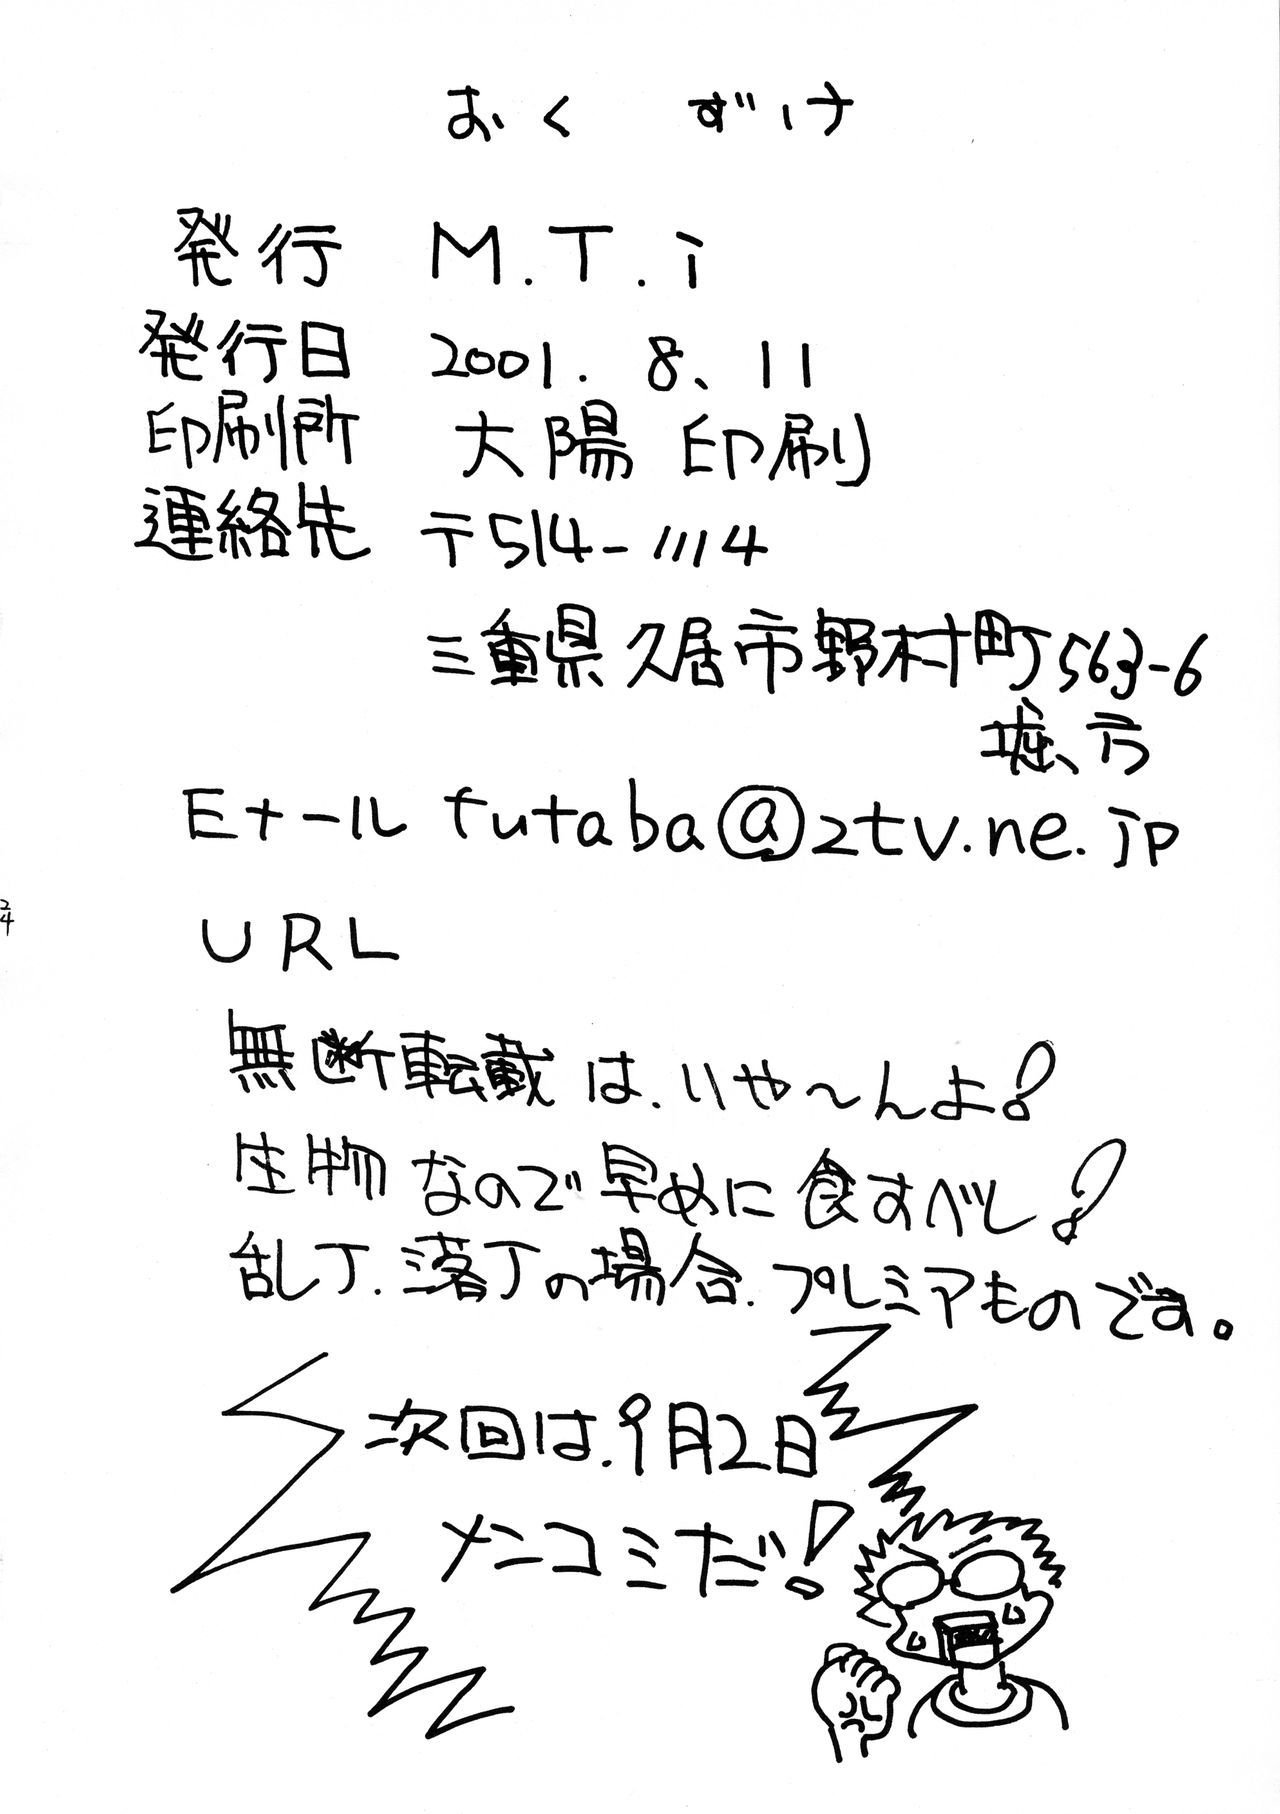 おくずけ
発行 M.T.i
発行日 2001.8.11
印刷所 大陽印刷
連絡先 〒514-1114
三重県久居市野村町563-6
堀、方
Eメール futaba@ztv.ne.jp
URL
24
無断転載は、いや〜んよ!
生物なので早めに食すべし!
乱丁、落丁の場合、プレミアものです。
次回は、9月2日
メンコミだ!